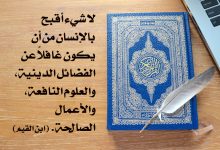 لا شيء أقبح
بالإنسان من أن
يكون غافلاً عن
الفضائل الدينية،
والعلوم النافعة،
والأعمال
الصالحة. (ابن القيم)